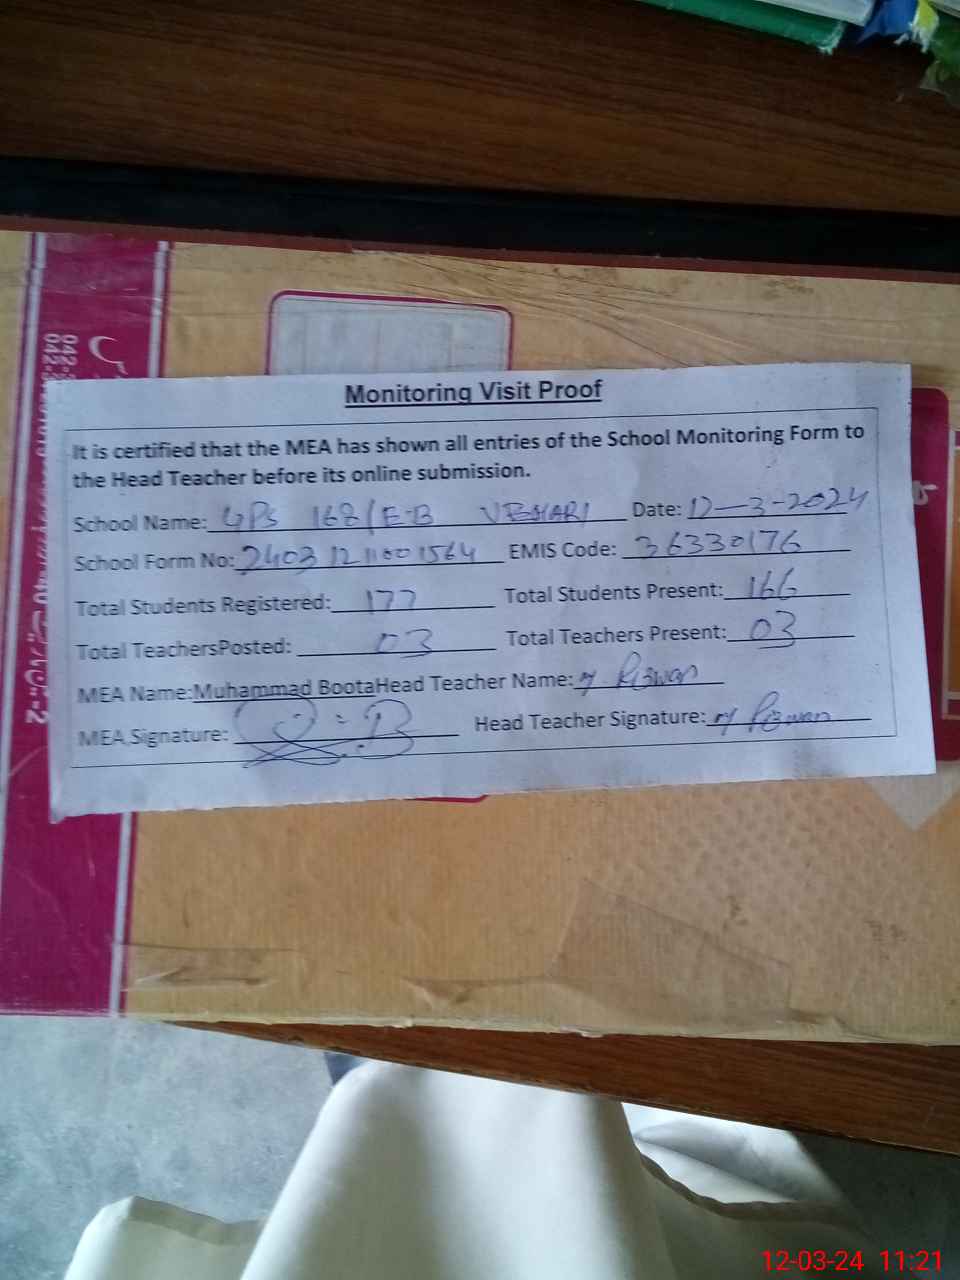 Monitoring Visit Proof
It is certified that the MEA has shown all entries of the School Monitoring Form to
the Head Teacher before its online submission.
School Name: GPS 168/E-B VEHARI Date: 12-3-2024
School Form No: 24031211001564 EMIS Code: 36330176
Total Students Registered: 177 Total Students Present: 166
Total TeachersPosted: 03 Total Teachers Present: 03
MEA Name:Muhammad BootaHead Teacher Name: M Rizwan
MEA Signature: Head Teacher Signature: M Rizwan
12-03-24 11:21